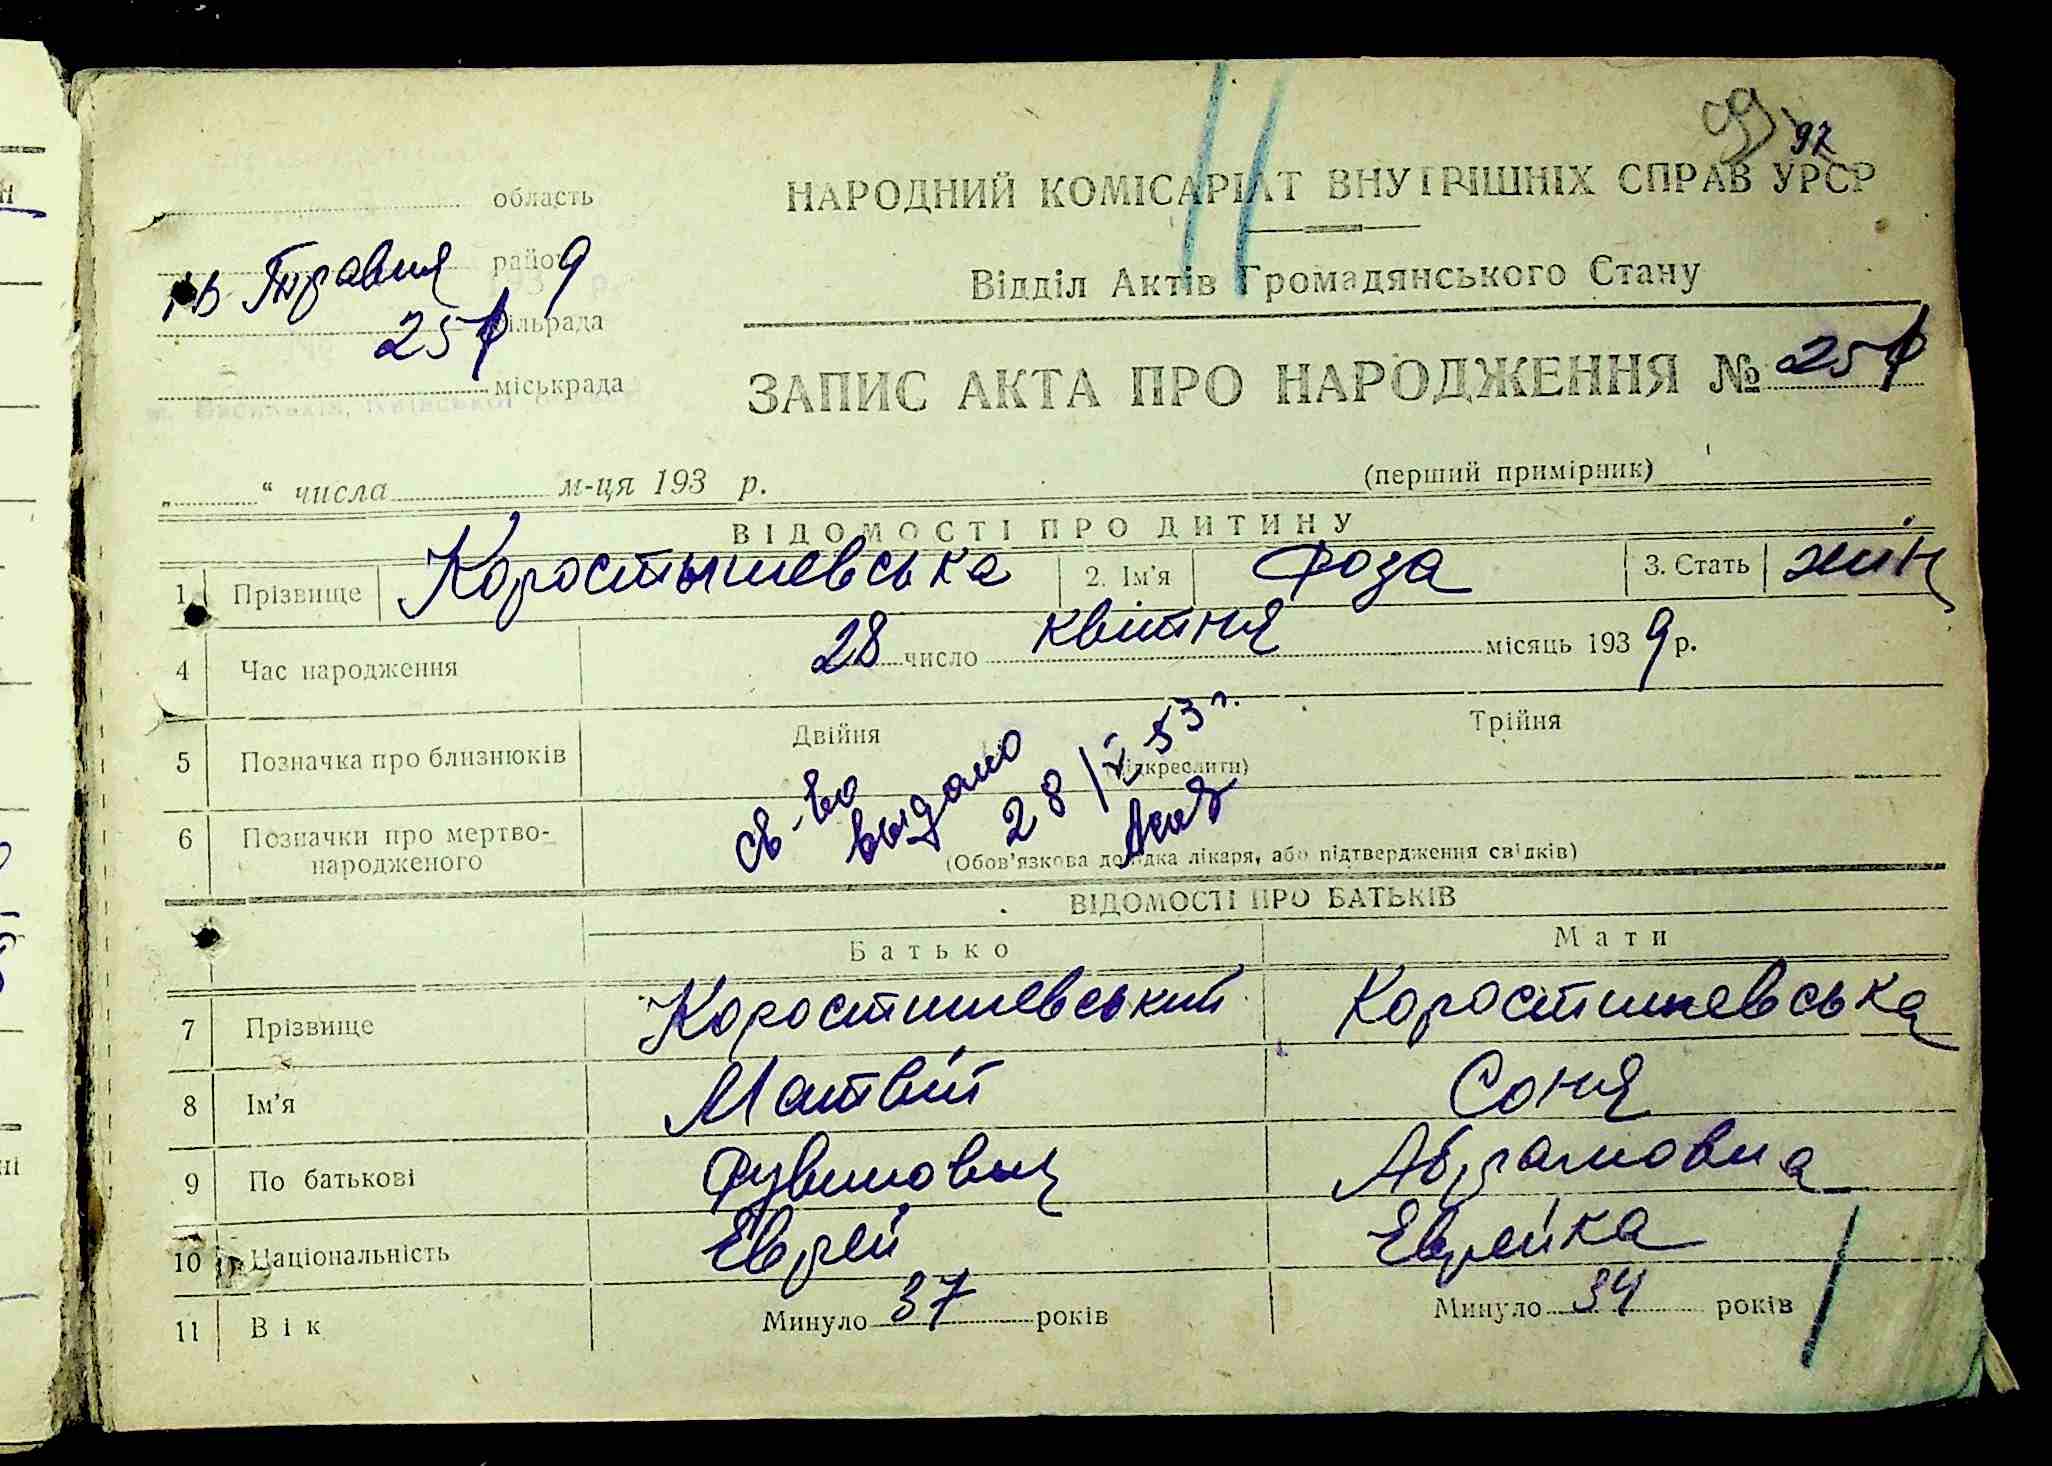 99 97
область
НАРОДНИЙ КОМІСАРІАТ ВНУТРІШНІХ СПРАВ УРСР
район
Травня 9
Відділ Актів Громадянського Стану
сільрада
257
міськрада
м. Васильків, Київської
ЗАПИС АКТА ПРО НАРОДЖЕННЯ № 257
„ “ числа м-ця 193 р.
(перший примірник)
ВІДОМОСТІ ПРО ДИТИНУ
1 Прізвище Коростышевська 2. Ім’я Роза 3. Стать жін
4 Час народження 28 число квітня місяць 1939 р.
5 Позначка про близнюків Двійня Трійня
(підкреслити)
св-во выдано 28/X 53 г.
6 Позначки про мертво-
народженого
(Обов’язкова довідка лікаря, або підтвердження свідків)
ВІДОМОСТІ ПРО БАТЬКІВ
Батько Мати
7 Прізвище Коростишевський Коростишевська
8 Ім’я Матвій Соня
9 По батькові Рувинович Абрамовна
10 Національність Еврей Еврейка
11 Вік Минуло 37 років Минуло 34 років